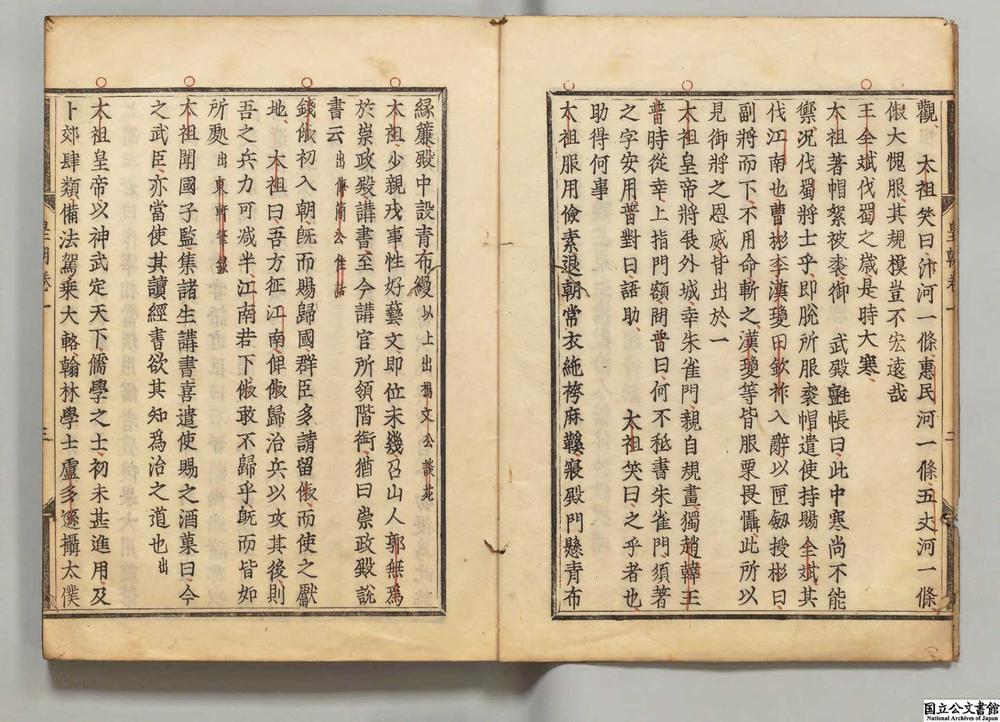 觀　太祖笑曰、汴河一條、惠民河一條、五丈河一條、
俶大愧服、其規模豈不宏遠哉
王全斌伐蜀之歲、是時大寒、
太祖著帽絮被裘、御　武殿氈帳曰、此中寒尚不能
禦、況伐蜀將士乎、即脫所服裘帽遣使持賜全斌其
伐江南也、曹彬李漢瓊田欽祚入辭、以匣劔授彬曰、
副將而下、不用命、斬之、漢瓊等皆股栗畏懾、此所以
見御將之恩威皆出於一
太祖皇帝將展外城、幸朱雀門親自規畫、獨趙韓王
普時從幸、上指門額問普曰、何不秪書朱雀門、須著
之字安用、普對曰、語助、　太祖笑曰、之乎者也、
助得何事
太祖服用儉素、退朝常衣絁袴麻鞵、寢殿門懸青布
緣簾、殿中設青布縵 以上出楊文公談苑
太祖、少親戎事、性好藝文、即位未幾、召山人郭無為
於崇政殿講書、至今講官所領階銜、猶曰崇政殿說
書云 出 簡公佳話
錢俶初入朝、旣而賜歸國、群臣多請留俶、而使之獻
地、　太祖曰、吾方征江南、俾俶歸治兵、以攻其後、則
吾之兵力可減半、江南若下、俶敢不歸乎、旣而皆如
所處 出東軒筆錄
太祖聞國子監集諸生講書喜、遣使賜之酒菓曰、今
之武臣、亦當使其讀經書、欲其知為治之道也 出
太祖皇帝、以神武定天下、儒學之士、初未甚進用、及
卜郊肆類、備法駕乗大輅、翰林學士盧多遜攝太僕
皇朝卷一
三
國立公文書館
National Archives of Japan